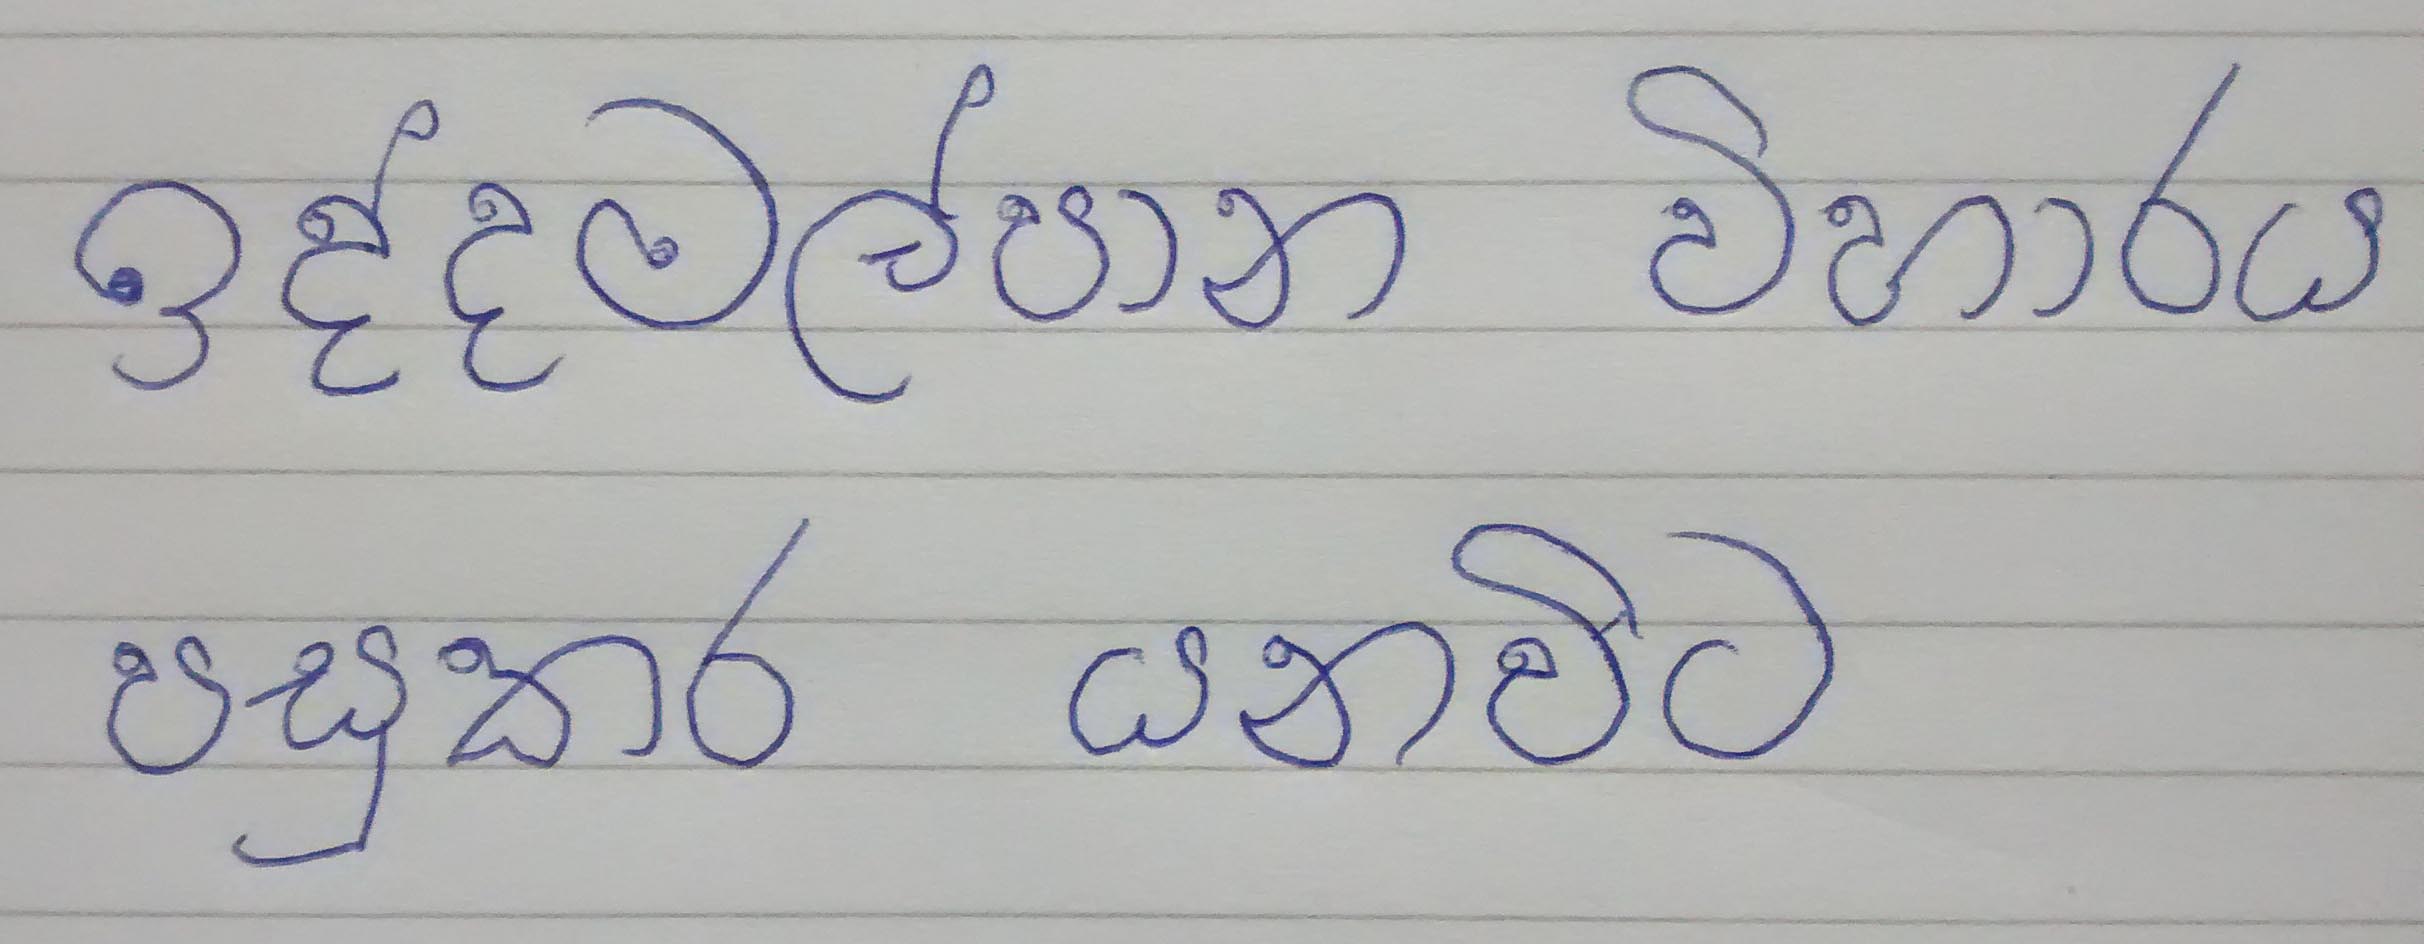 ඉද්දමල්පාන විහාරය
පසුකර යනවිට